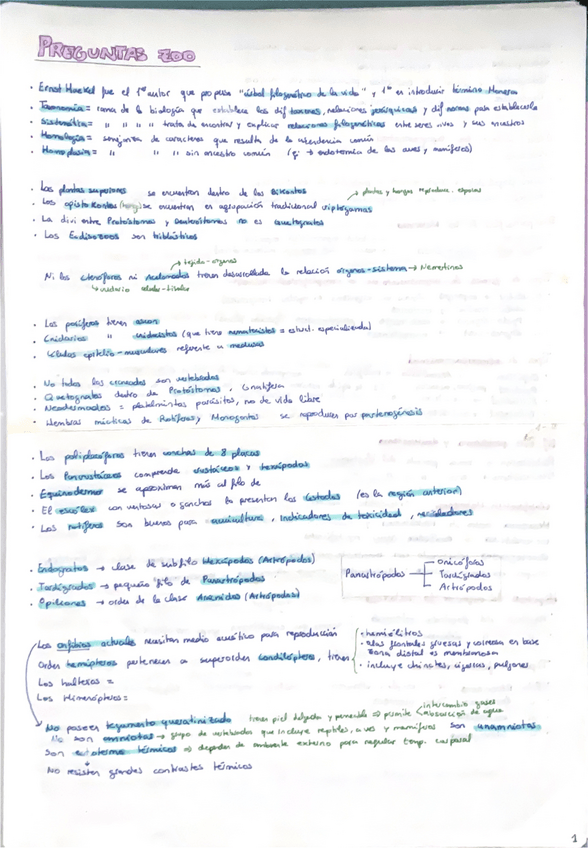 PREGUNTAS ZOO
· Ernst Haeckel fue el 1er autor que propuso "árbol filogenético de la vida" y 1º en introducir término Moneras
· Taxonomía = rama de la biología que establece los dif taxones, relaciones jerárquicas y dif normas para establecerla
· Sistemática = " " " " trata de encontrar y explicar relaciones filogenéticas entre seres vivos y sus ancestros
· Homología = semejanza de caracteres que resulta de la ascendencia común
· Homoplasia = " " " sin ancestro común (ej → endotermia de las aves y mamíferos)
· Las plantas superiores se encuentran dentro de los Bikontos
→ plantas y hongos reproduc. esporas
· Los opistokontos (hongos) se encuentran en agrupación tradicional criptógamas
· La div entre Protóstomos y Deuteróstomos no es quetognatos
· Los Ecdisozoos son triblásticos
→ tejido-órganos
Ni los ctenóforos ni acelomados tienen desarrollada la relación órganos-sistema → Nemertinos
↳ cnidario celular-tisular
· Los poríferos tienen ascon
· Cnidarios " cnidocistos (que tiene nematocistos = estruct. especializada)
· Células epitelio-musculares referente a medusas
· No todos los craneados son vertebrados
· Quetognatos dentro de Protóstomos,
· Neodermados = platelmintos parásitos, no de vida libre
· Hembras mícticas de Rotíferos y Monogontos se reproducen por partenogénesis
· Los poliplacóforos tienen conchas de 8 placas
· Los Pancrustáceos comprende crustáceos y hexápodos
· Equinodermo se aproximan más al filo de
· El escólex con ventosas o ganchos lo presentan los Cestodos (es la región anterior)
· Los rotíferos son buenos para acuicultura, indicadores de toxicidad, recicladores
· Endognatos → clase de subfilo Hexápodos (Artrópodos)
· Tardígrados → pequeño filo de Panartrópodos
· Opiliones → orden de la clase Arácnidos (Artrópodos)
Panartrópodos
Onicóforos
Tardígrados
Artrópodos
Los anfibios actuales necesitan medio acuático para reproducción
Orden hemípteros pertenecen a superorden condilópteros, tienen
· hemiélitros
· alas frontales gruesas y coriáceas en base
zona distal es membranosa
· incluye chinches, cigarras, pulgones
Los halterios =
Los Himenópteros =
No poseen tegumento queratinizado tienen piel delgada y permeable ⇒ permite
intercambio gases
absorción de agua
No son amniotas → grupo de vertebrados que incluye reptiles, aves y mamíferos son anamniotas
Son ectotermo térmicos ⇒ dependen de ambiente externo para regular temp. corporal
No resisten grandes contrastes térmicos
1